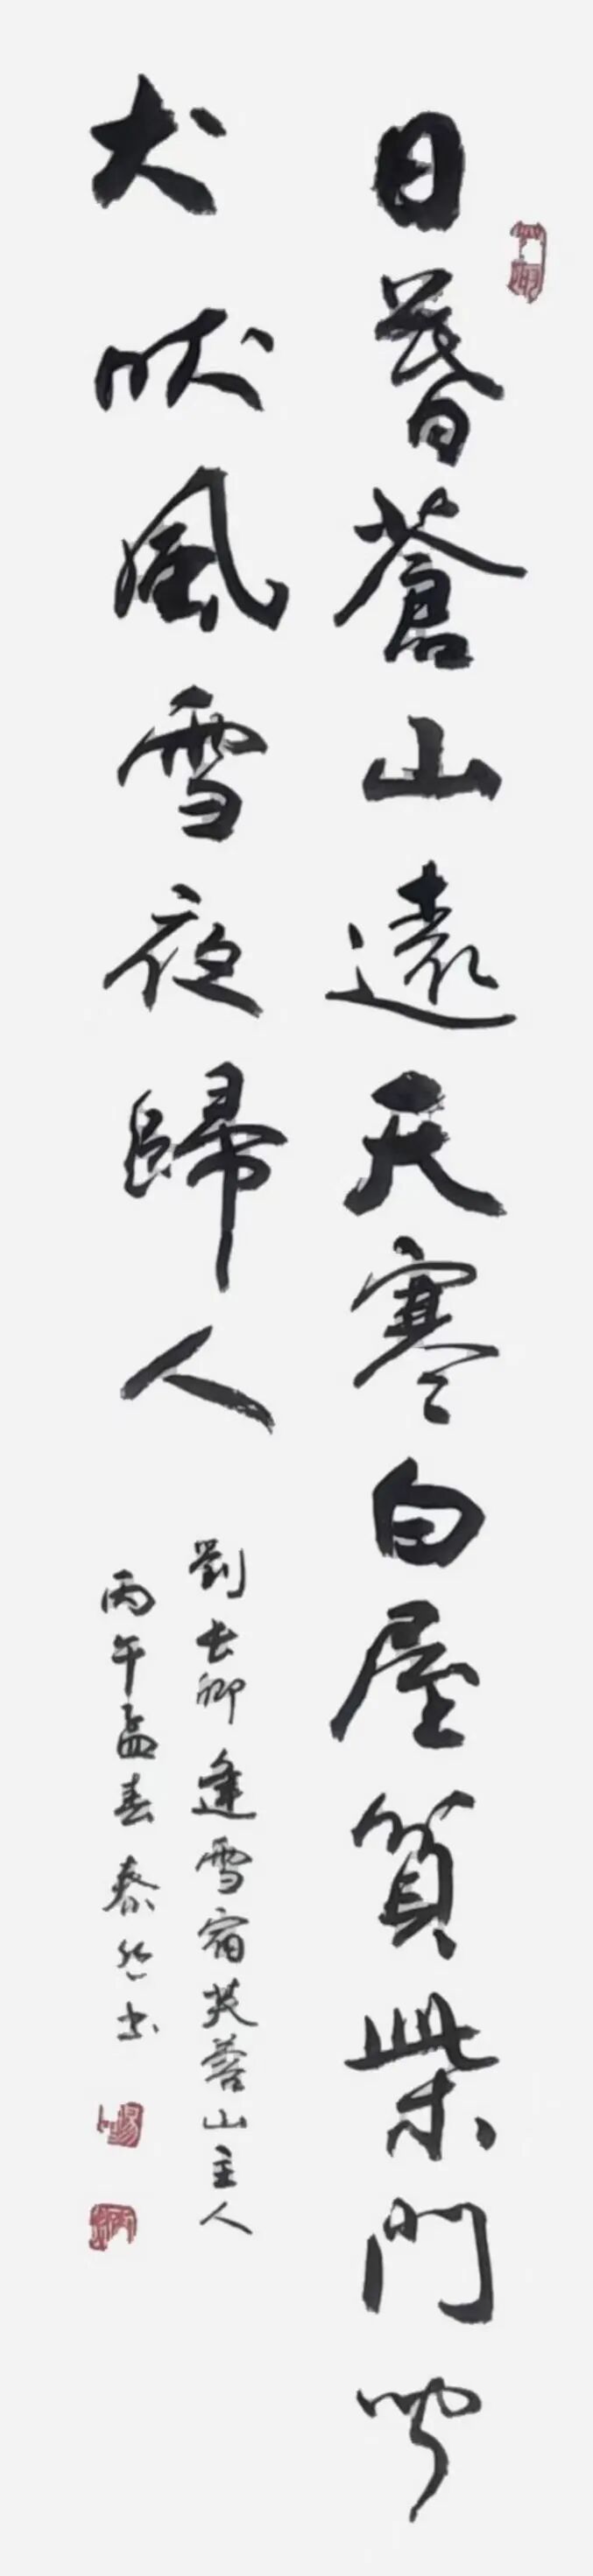 日暮蒼山遠天寒白屋貧柴門聞
犬吠風雪夜歸人
劉長卿逢雪宿芙蓉山主人
丙午孟春泰然书